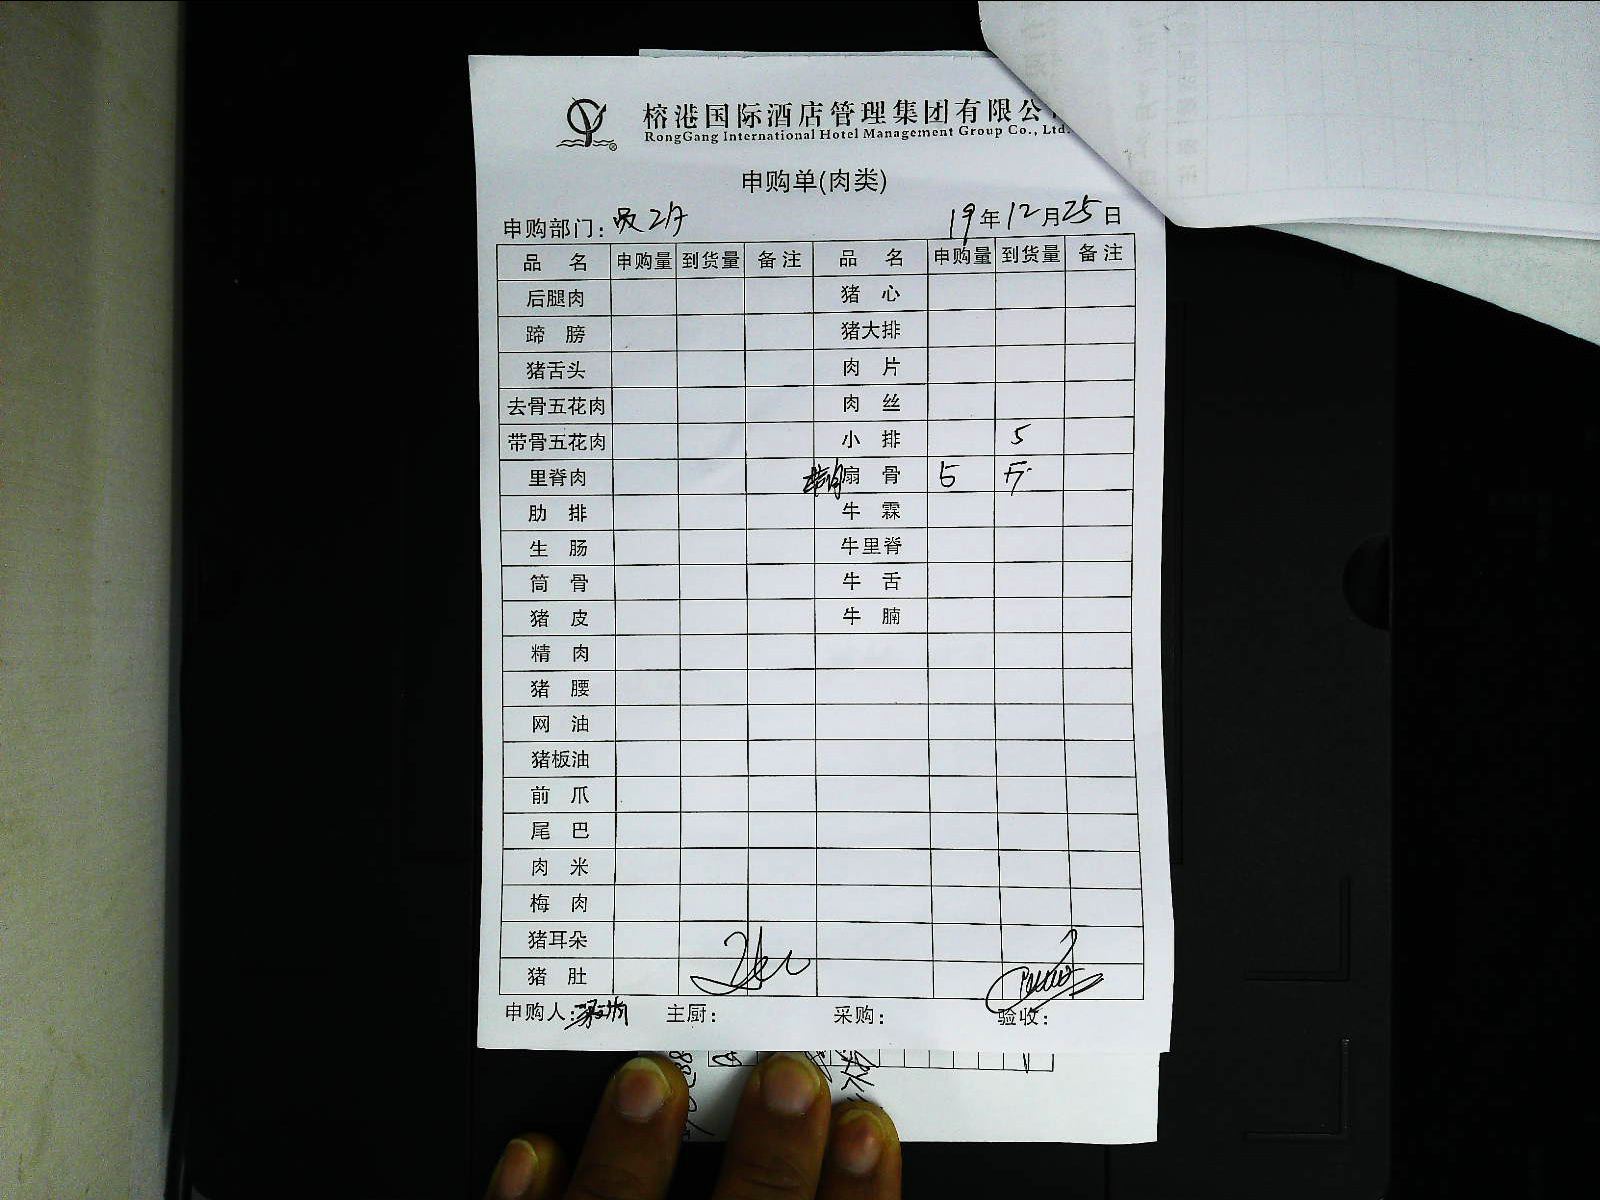 榕港国际酒店管理集团有限公
RongGang International Hotel Management Group Co., Ltd.
申购单(肉类)
申购部门：
19年12月25日
品 名 申购量 到货量 备注 品 名 申购量 到货量 备注
后腿肉 猪 心
蹄 膀 猪大排
猪舌头 肉 片
去骨五花肉 肉 丝
带骨五花肉 小 排 5
里脊肉 扇 骨 5
肋 排 牛 霖
生 肠 牛里脊
筒 骨 牛 舌
猪 皮 牛 腩
精 肉
猪 腰
网 油
猪板油
前 爪
尾 巴
肉 米
梅 肉
猪耳朵
猪 肚
申购人： 主厨： 采购： 验收：